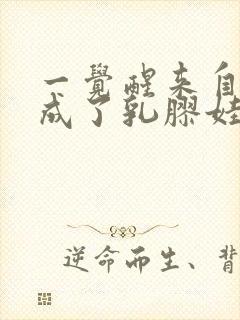 一覺醒来自
成了乳膠娃
逆命而生、背